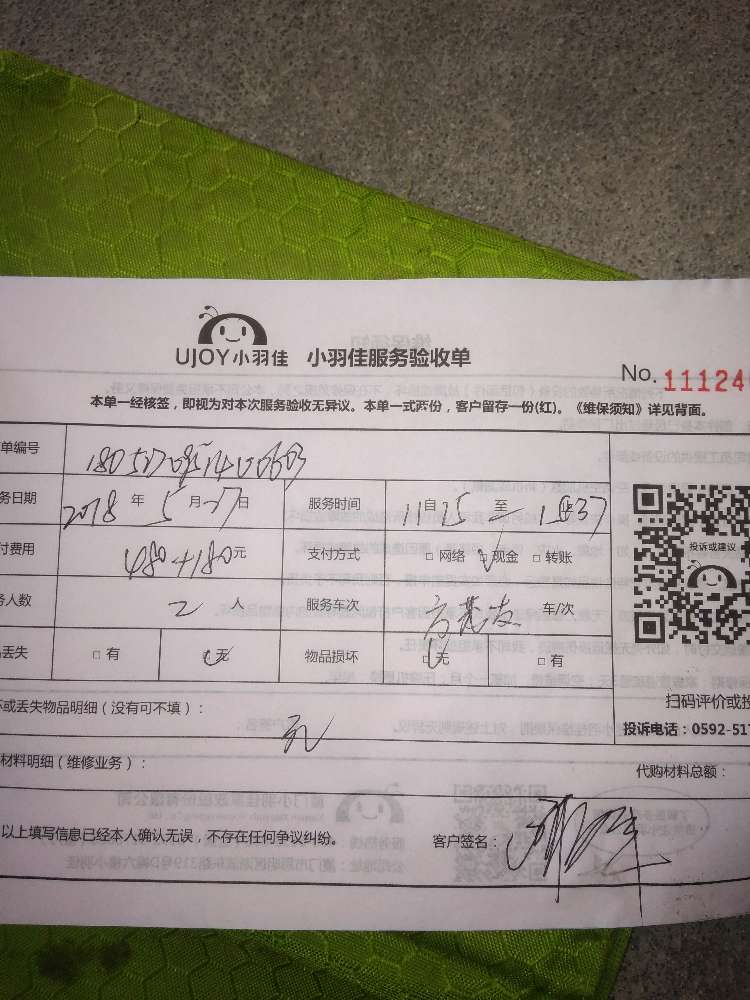 UJOY小羽佳 小羽佳服务验收单
No. 11124
本单一经核签，即视为对本次服务验收无异议。本单一式两份，客户留存一份(红)。《维保须知》详见背面。
单编号
务日期 2018 年 5 月 27 日 服务时间 11 自 15 至
付费用 480+180 元 支付方式 □ 网络 现金 □ 转账
务人数 2 人 服务车次 车/次
丢失 □ 有 无 物品损坏 □ 无 □ 有
坏或丢失物品明细（没有可不填）：
无
材料明细（维修业务）：
代购材料总额：
以上填写信息已经本人确认无误，不存在任何争议纠纷。
客户签名：
投诉或建议
扫码评价或投
投诉电话：0592-517